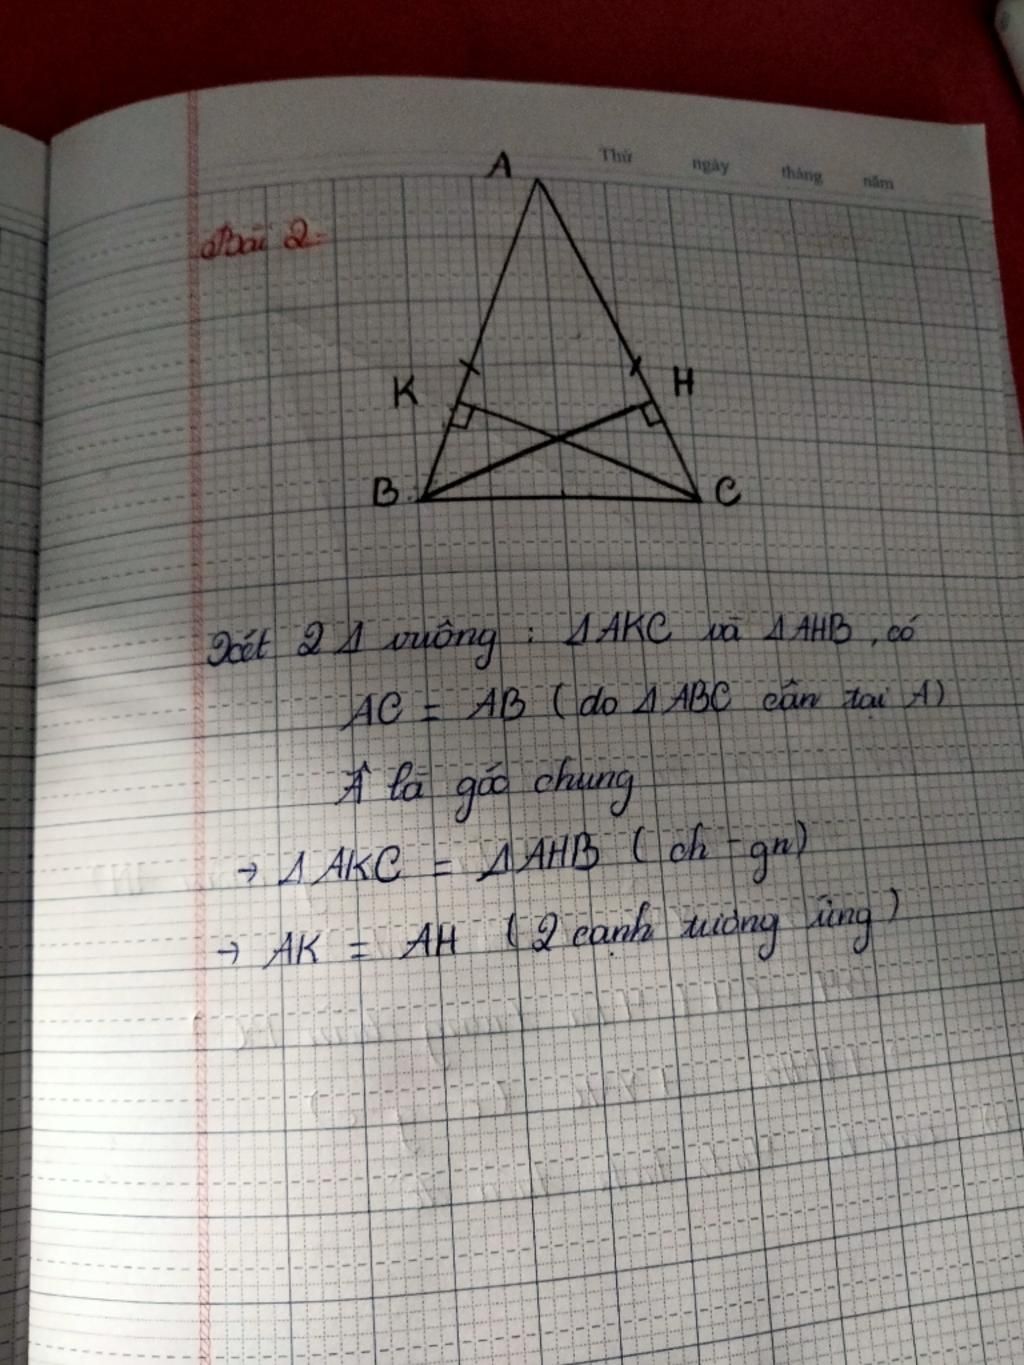 Thứ ngày tháng năm
Bài 2:
A
K
H
B
C
Xét 2 Δ vuông : ΔAKC và ΔAHB, có
AC = AB (do ΔABC cân tại A)
Â là góc chung
→ ΔAKC = ΔAHB (ch - gn)
→ AK = AH (2 cạnh tương ứng)